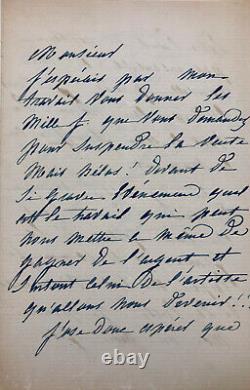 Monsieur
J'espérais par mon
travail vous donner les
Mille f que vous demandez
pour suspendre la vente
Mais hélas! devant de
si graves événements quel
est le travail qui peut
nous mettre à même de
gagner de l'argent et
surtout celui de l'artiste
qu'allons nous devenir!!
J'ose donc espérer que
© ebay